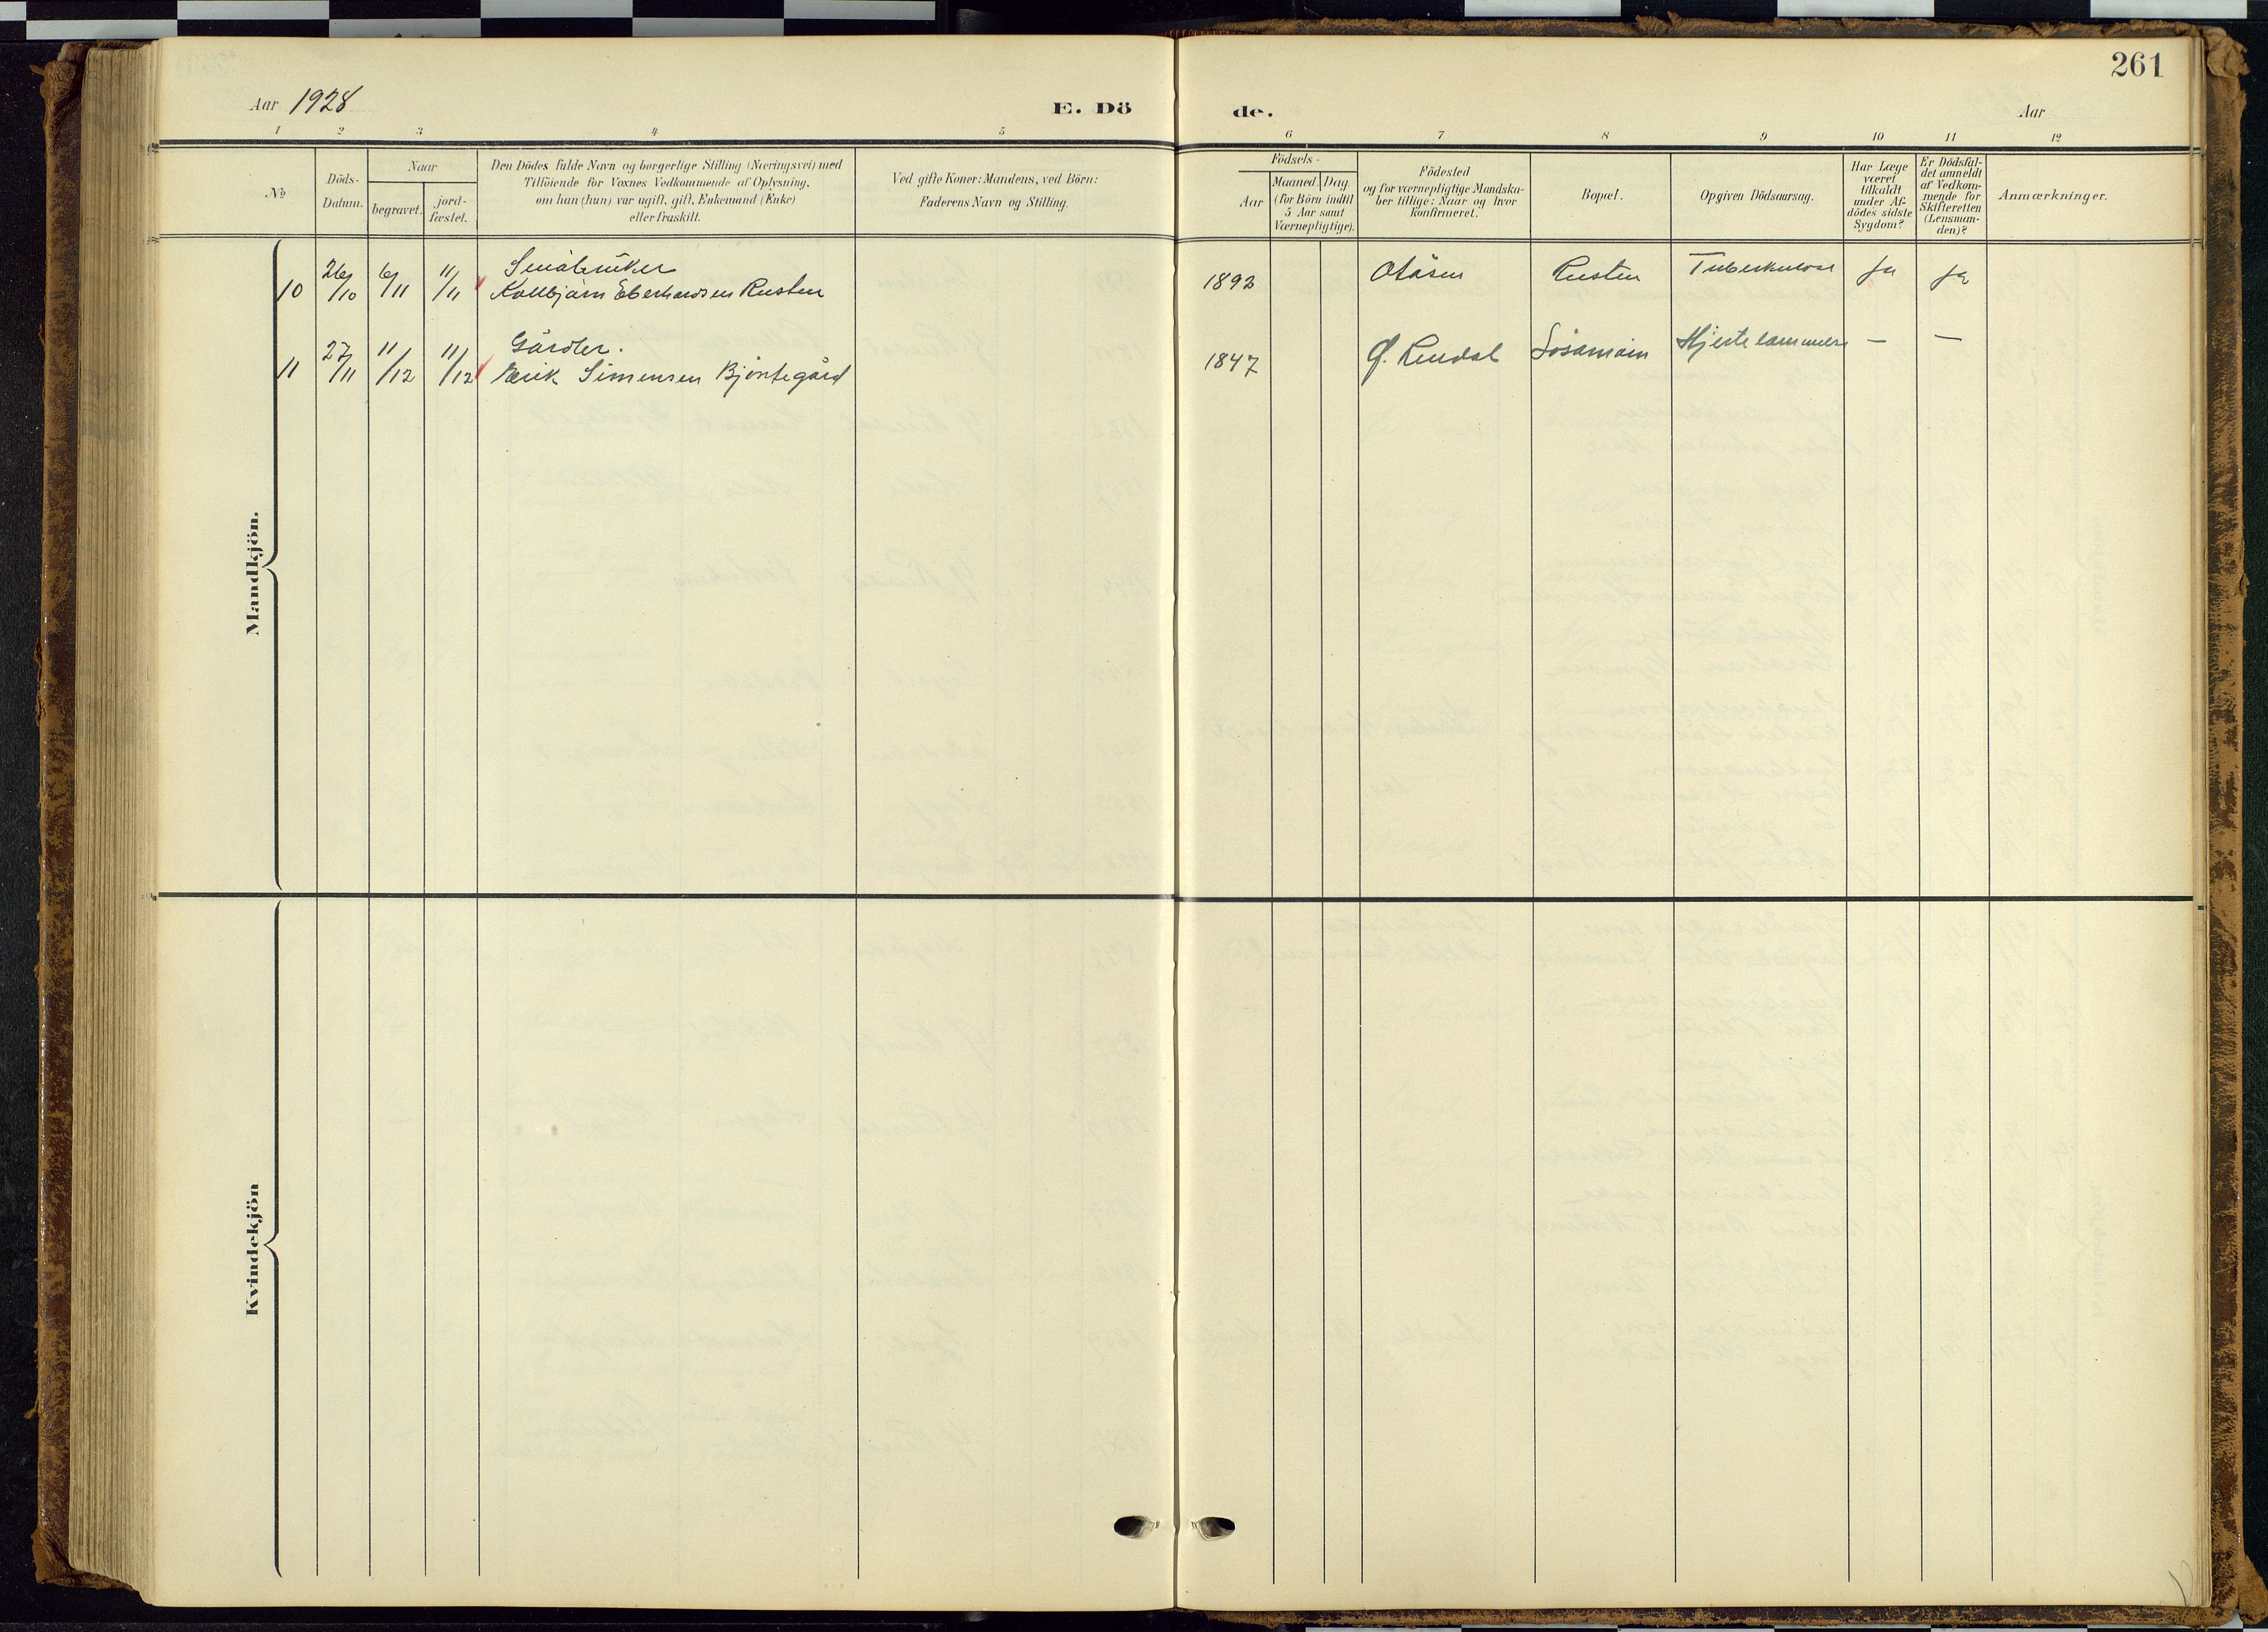 261
Aar 1928
E. Dö
de.
Aar
1 2 3 4 5 6 7 8 9 10 11 12
No
Döds-
Datum.
Naar
begravet.
jord-
fæstet.
Den Dödes fulde Navn og borgerlige Stilling (Næringsvei) med
Tilföiende for Voxnes Vedkommende af Oplysning,
om han (hun) var ugift, gift, Enkemand (Enke)
eller fraskilt.
Ved gifte Koner: Mandens, ved Börn:
Faderens Navn og Stilling.
Födsels-
Aar
Maaned. Dag.
(for Börn indtil
5 Aar samt
Værnepligtige).
Födested
og for værnepligtige Mandska-
ber tillige: Naar og hvor
konfirmeret.
Bopæl.
Opgiven Dödsaarsag.
Har Læge
været
tilkaldt
under Af-
dödes sidste
Sygdom?
Er Dödsfal-
det anmeldt
af Vedkom-
mende for
Skifteretten
(Lensman-
den)?
Anmærkninger.
Mandkjön.
Småbruker
10 26/10 6/11 11/11 Kolbjørn Eberhardsen Rusten 1892 Otåsen Rusten Tuberkulose Ja Ja
Gårdbr.
11 27/11 11/12 11/12 Erik Simensen Bjøntegård 1847 Ø. Rendal Hjertelammelse — —
Kvindekjön